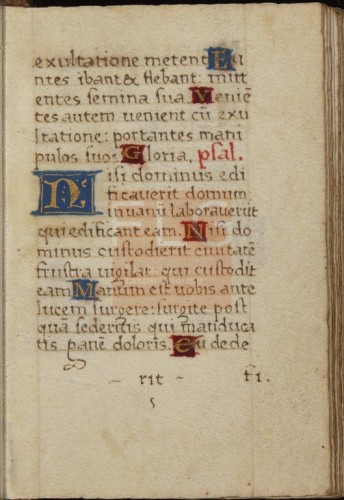 exultatione metent Eu
ntes ibant & flebant: mitt
entes semina sua. Venië
tes autem uenient cū exu
ltatione: portantes mani
pulos suos Gloria. psal.
Nisi dominus edi
ficauerit domum
in uanū laborauerūt
qui edificant eam. Nisi do
minus custodierit ciuitatē
frustra uigilat: qui custodit
eam Vanum est uobis ante
lucem surgere: surgite post
quā sederitis qui manduca
tis panē doloris. Cu de de
- rit - f1.